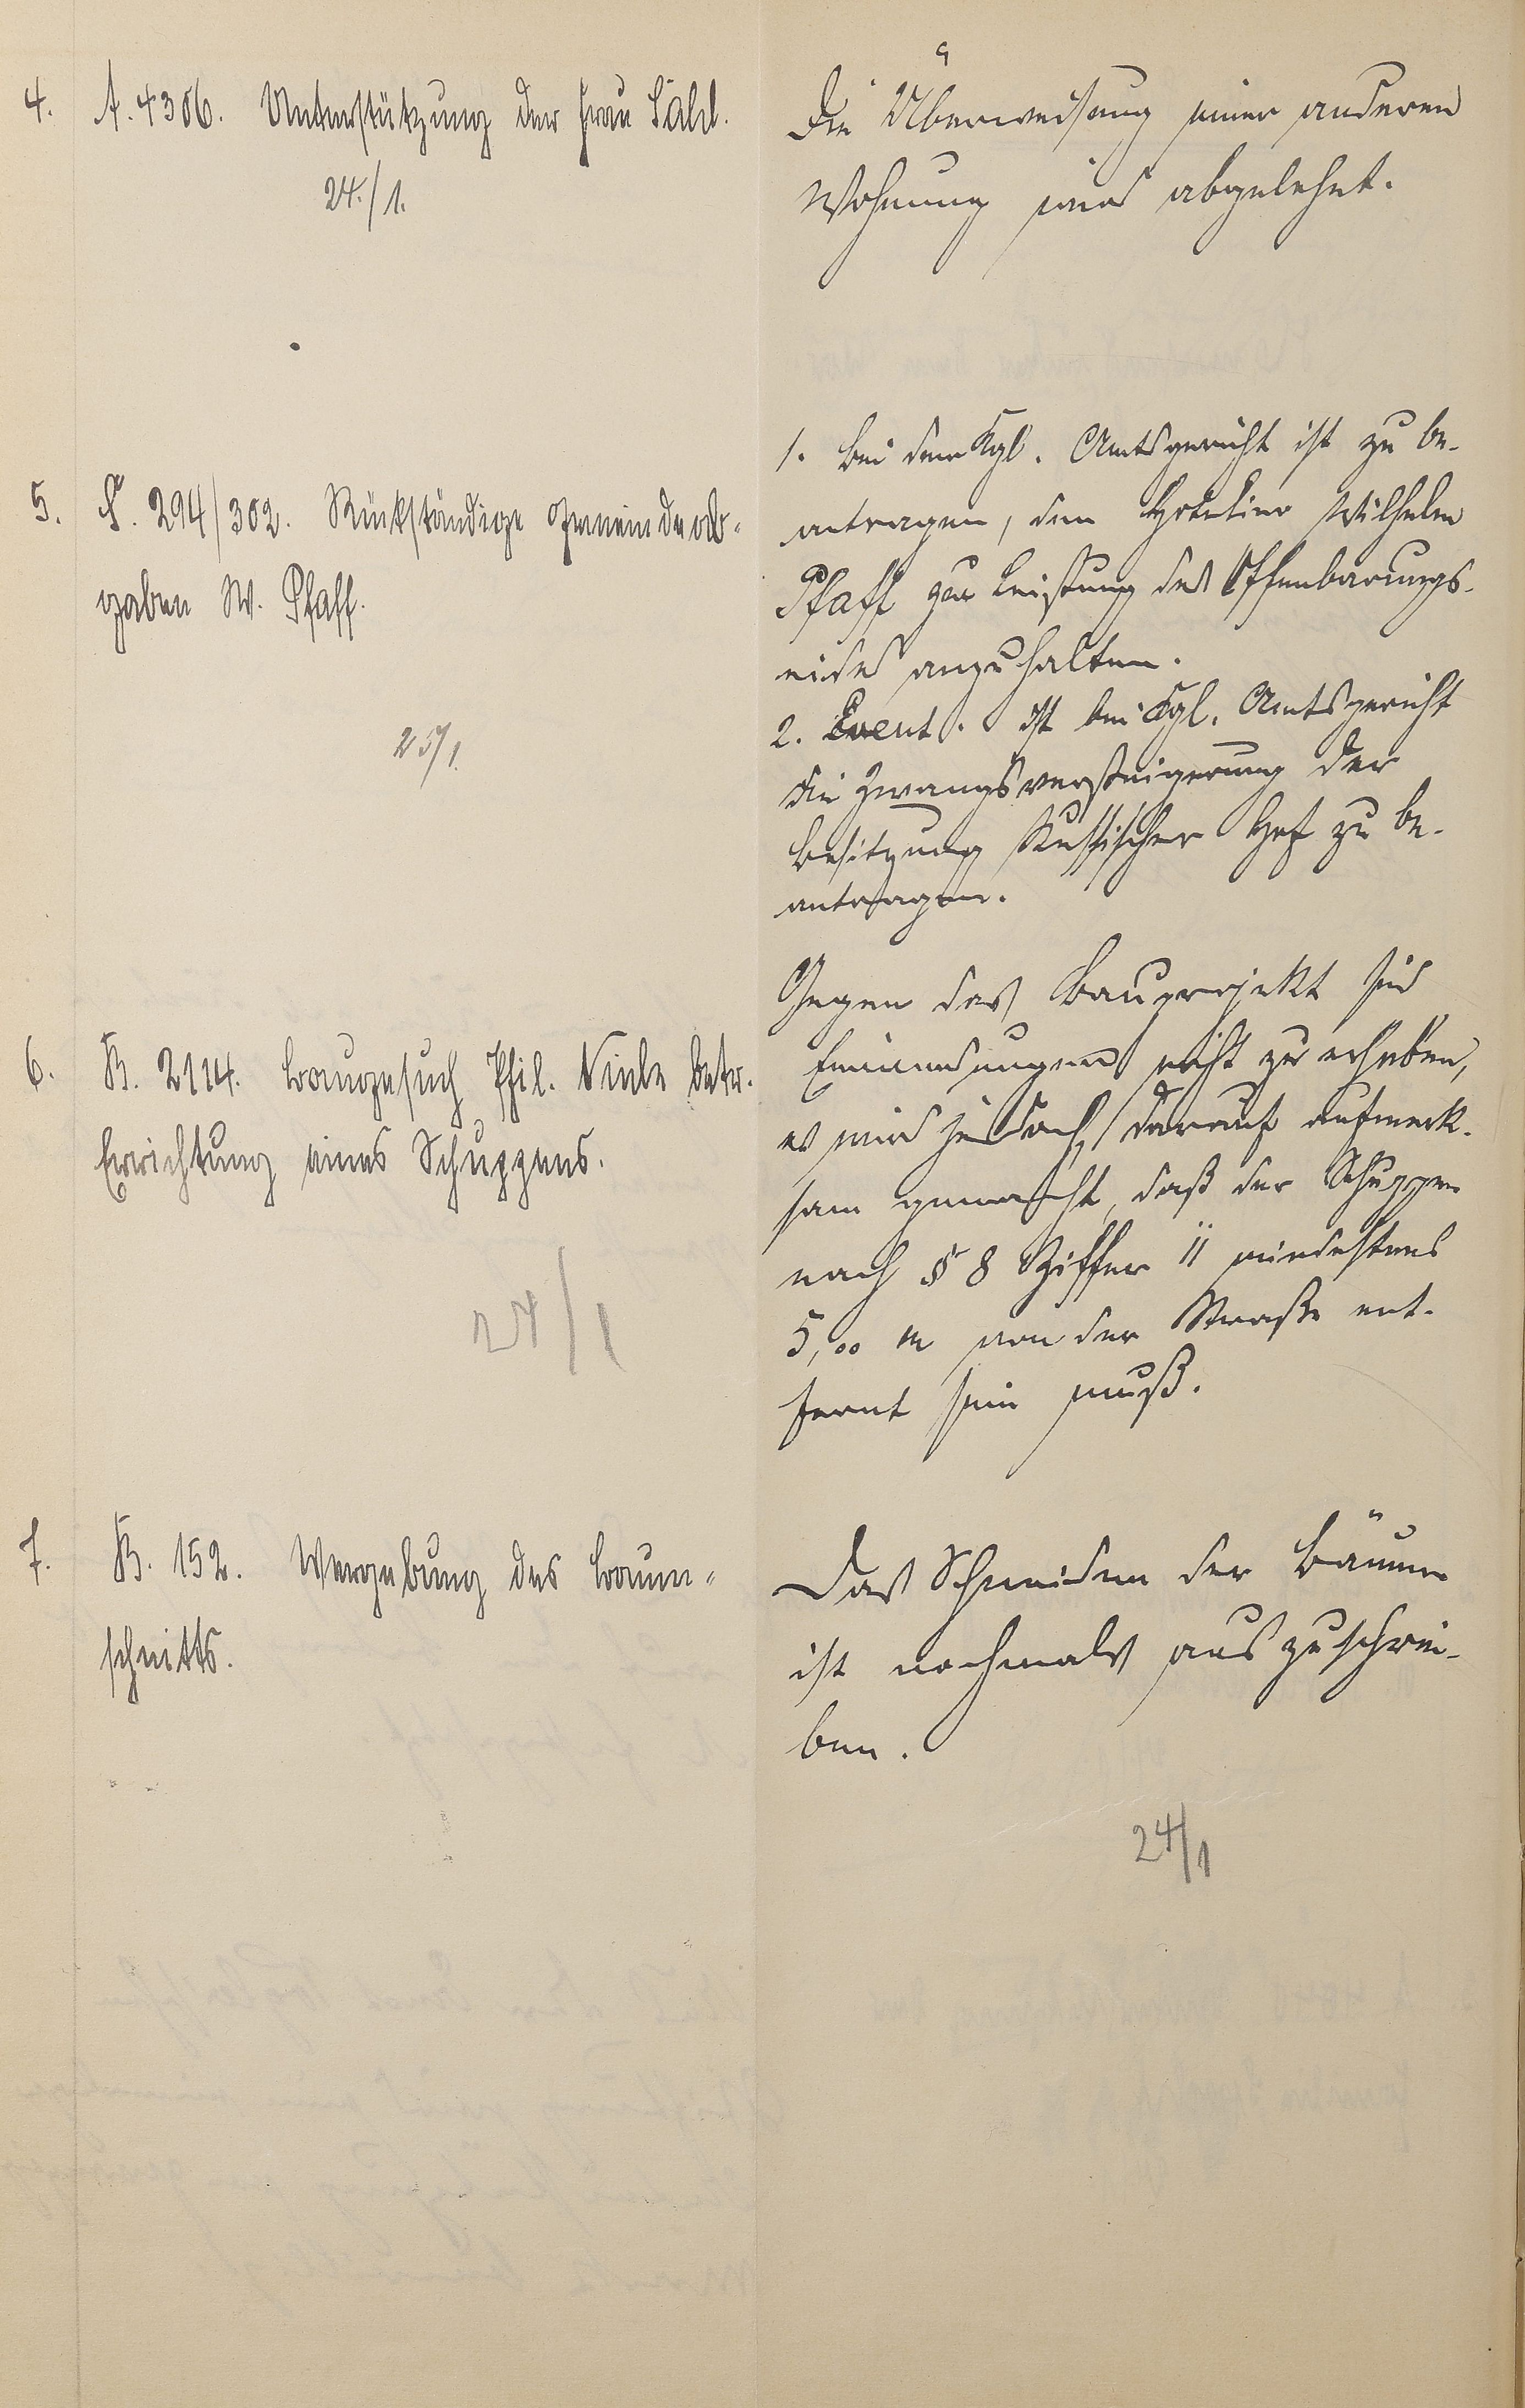 4. A. 4306. Unterstützung der Frau Sahl.
24./1.
Die Überweisung einer anderen
Wohnung wird abgelehnt.
5. F. 294/302. Rückständige Gemeindeab-
gaben W. Pfaff.
25/1.
1. Bei dem Kgl. Amtsgericht ist zu be-
antragen, den Hotelier Wilhelm
Pfaff zur Leistung des Offenbarungs-
eides anzuhalten.
2. Event. ist bei Kgl. Amtsgericht
die Zwangsversteigerung der
Besitzung Russischer Hof zu be-
antragen.
6. B. 2114. Baugesuch Phil. betr.
Errichtung eines Schuppens.
24/1
Gegen das Bauprojekt sind
Einwendungen nicht zu erheben,
es wird jedoch darauf aufmerk-
sam gemacht, daß der Schuppen
nach § 8 Ziffer 11 mindestens
5,00 m von der Straße ent-
fernt sein muß.
7. B. 152. Vergebung des Baum-
schnitts.
Das Schneiden der Bäume
ist nochmals auszuschrei-
ben.
24/1